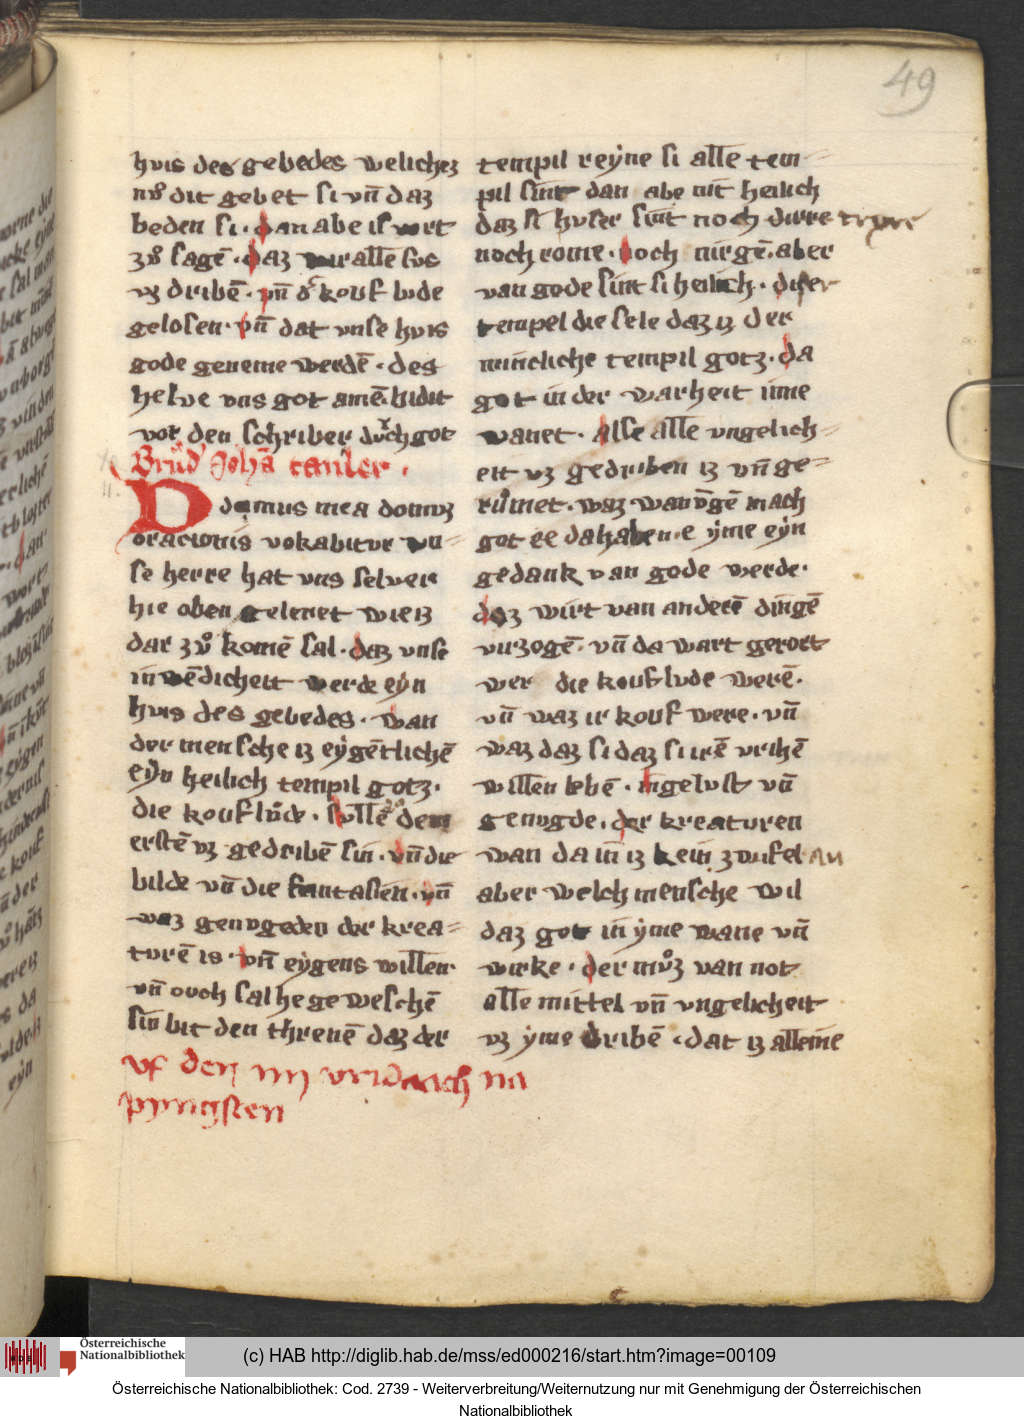 49
huis des gebedes welichez
nuͦ dit gebet si vn̄ daz
beden si · dan abe is wirt
zuͦ sagē · daz wir alle sus
vz dribē · vn̄ d' kouf lude
gelosen · vn̄ dat vnse huis
gode geneme werdē · des
helve vns got amē. bidit
vor den schriber durch got
Brud' Johā tauler ·
Domus mea domuz
oracionis vokabitur vn=
se herre hat vns selver
hie oben gelenet wie iz
dar zuͦ komē sal · daz vnse
inwēdicheit werde eẏn
huis des gebedes · wan
der mensche iz eẏgētlichē
eẏn heilich tempil gotz ·
die kouflude · sulle dem
erstē vz gedribē sin · vn̄ die
bilde vn̄ die fantasien · vn̄
waz genugeden der krea=
turē is · vn̄ eẏgens willen ·
vn̄ ouch sal he geweschē
sin bit den threnē daz der
vf den iiij vridaach na
pyngsten
tempil reẏne si alle tem=
pil sint dan abe nit heilich
daz si huser sint noch dirre
noch rome · noch nirgē · aber
van gode sint si heilich · diser
tempel die sele daz iz der
mincliche tempil gotz · da
got in der warheit inne
wanet · alse alle vngelich=
eit vz gedriben iz vn̄ ge=
ruͦmet · waz wan v̄gē mach
got ee da haben · e ẏme eẏn
gedank van gode werde ·
daz wirt van anderē dingē
vurzogē · vn̄ da wart gerort
wer die kouflude werē ·
vn̄ waz ir kouf were · vn̄
waz daz si daz si irē vrihē
willen lebē · in gelust vn̄
genugde · der kreaturen
wan da in iz kein zwifel an
aber welch mensche wil
daz got in ẏme wane vn̄
wirke · der muͦz van not
alle mittel vn̄ vngelicheit
vz ẏme dribē · dat iz alleine
Österreichische
Nationalbibliothek
(c) HAB http://diglib.hab.de/mss/ed000216/start.htm?image=00109
Österreichische Nationalbibliothek: Cod. 2739 - Weiterverbreitung/Weiternutzung nur mit Genehmigung der Österreichischen
Nationalbibliothek